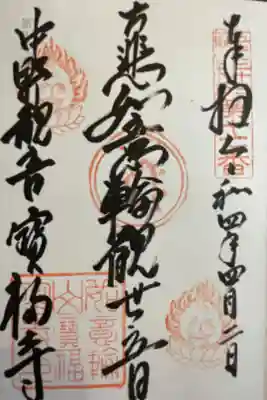 奉拝 令和四年四月二日
大悲 如意輪観世音
中野観音 寶福寺